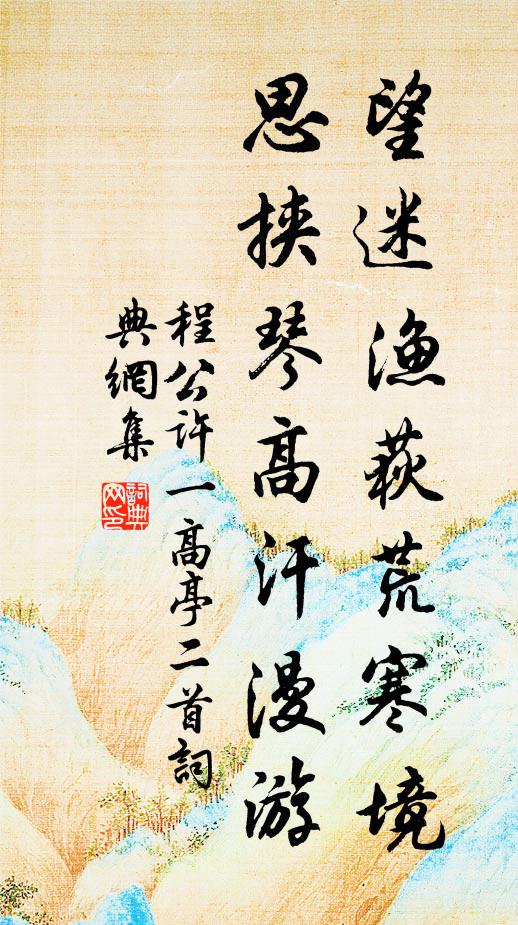 望迷渔荻荒寒境
思挟琴高汗漫游
程公许一高亭二首词
典網集
詞典網印